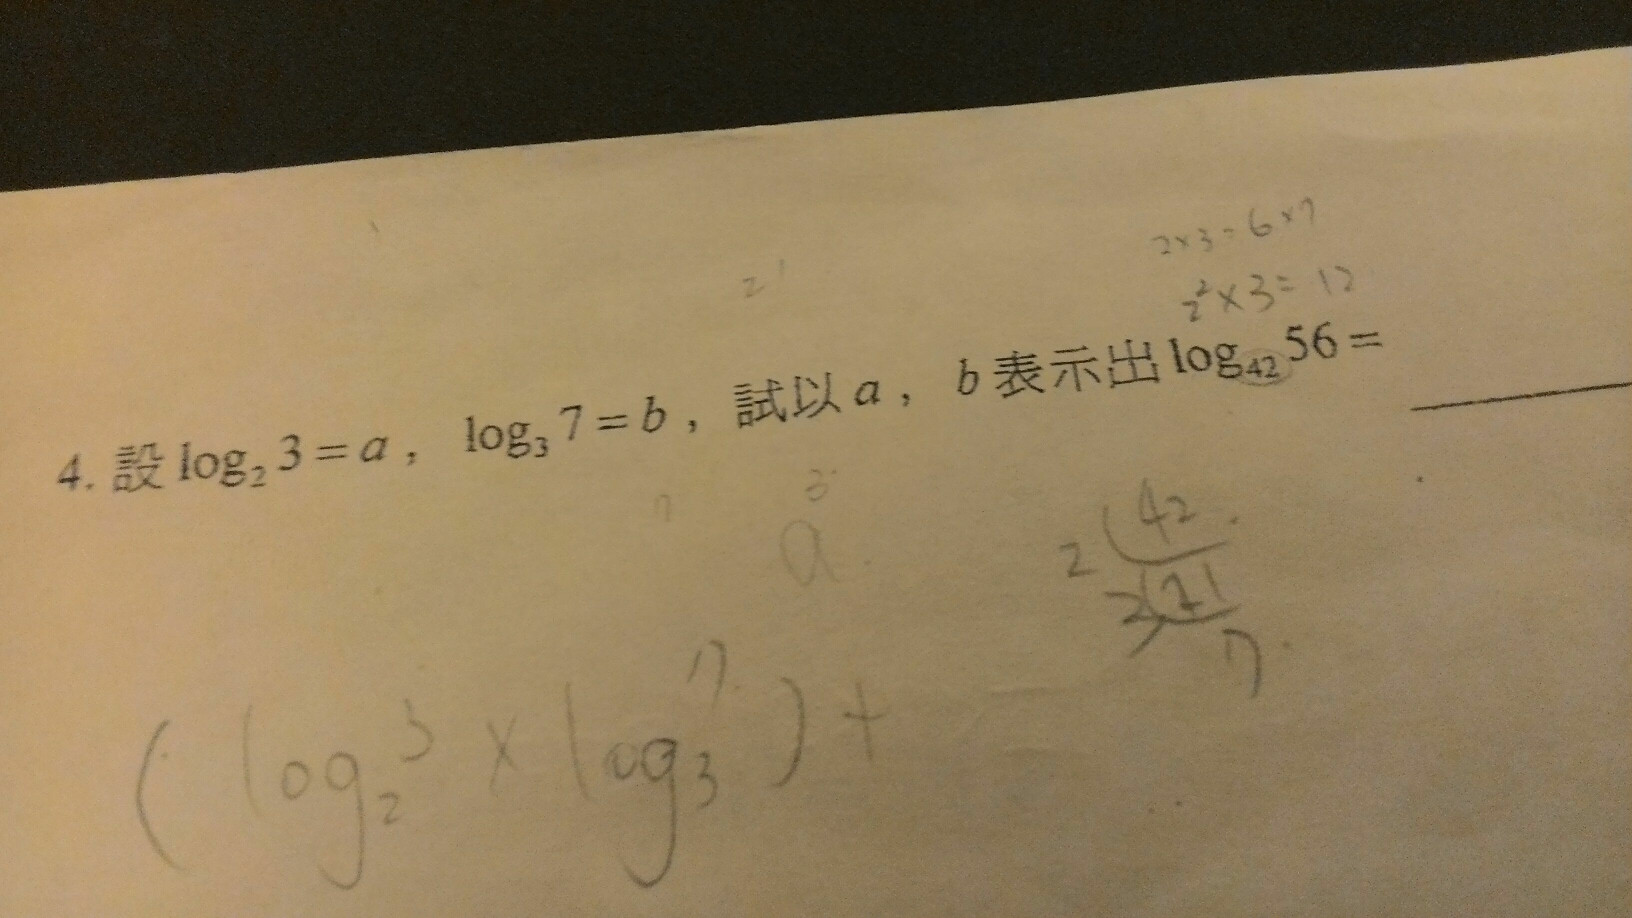 2×3=6×7
2²×3=12
4. 設 log₂ 3 = a , log₃ 7 = b , 試以 a , b 表示出 log₄₂ 56 =
3
a
2 42
21
7
( log₂ 3 × log₃ 7 ) +